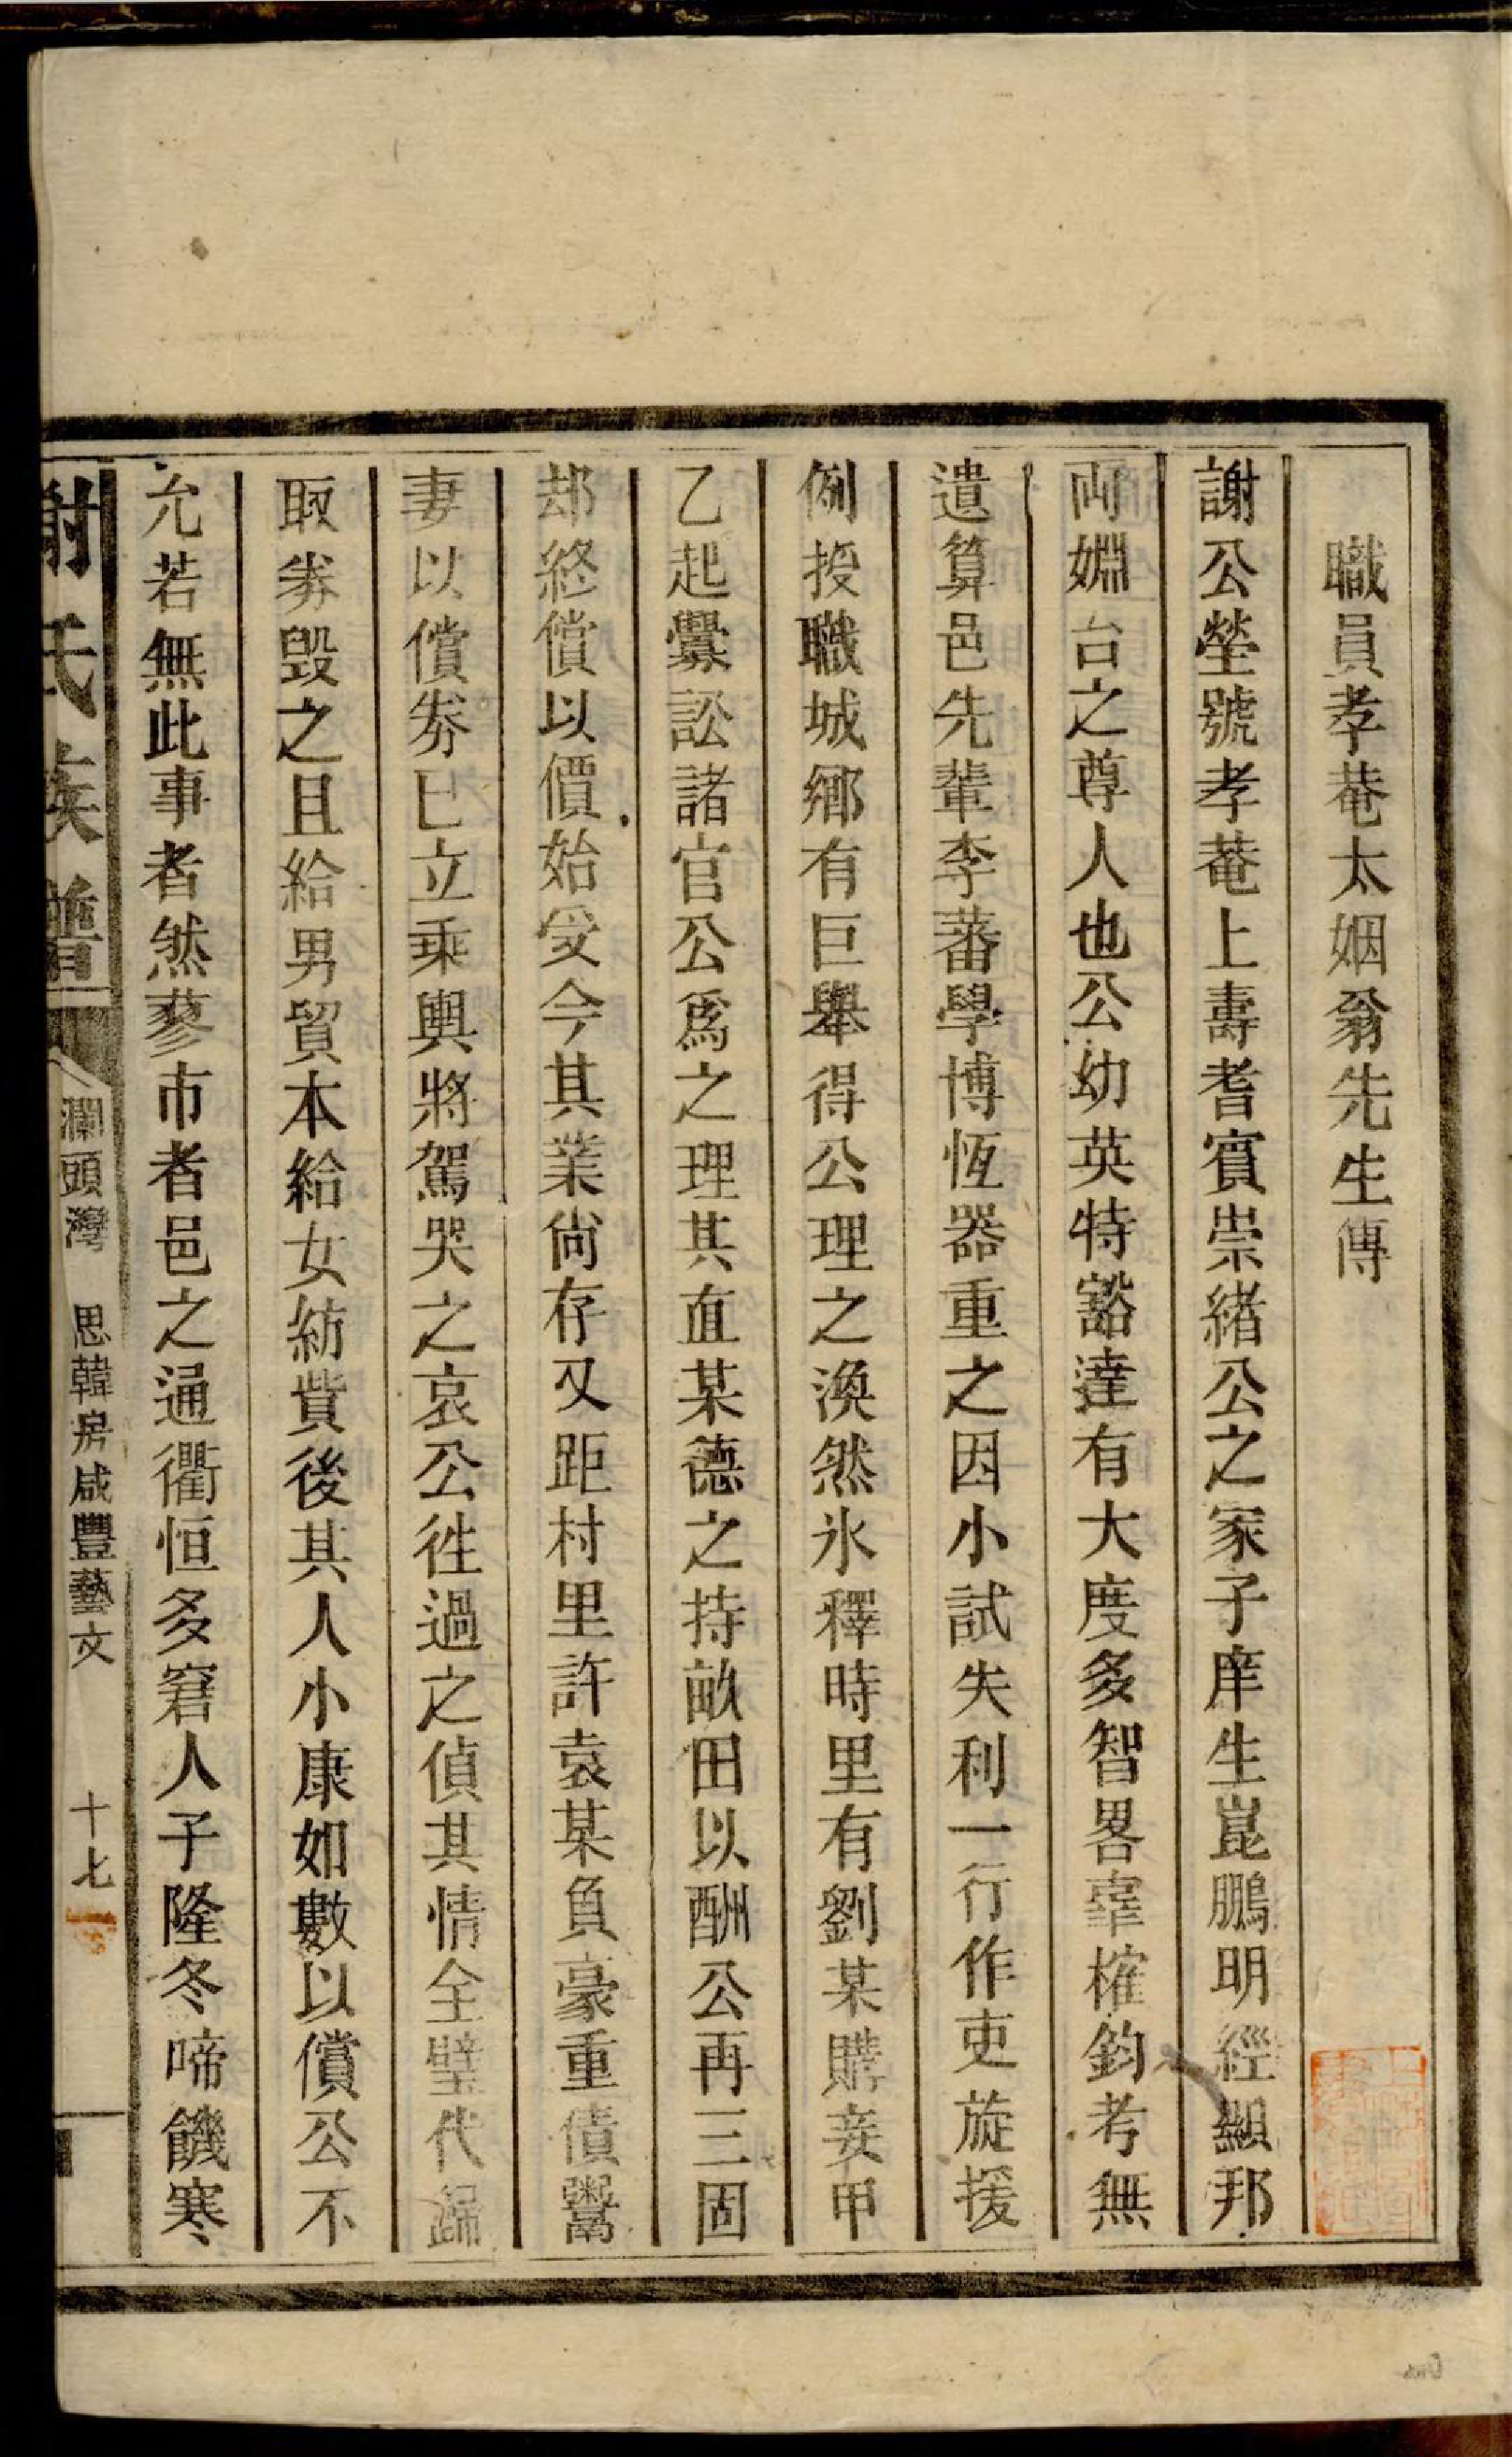 職員孝菴太姻翁先生傳
謝公瑩號孝菴上壽耆賓崇緒公之冢子庠生崑鵬明經顯邦
両婣台之尊人也公幼英特豁達有大度多智畧辜榷鈞考無
遺算邑先輩李蕃學博恆器重之因小試失利一行作吏旋援
例授職城鄉有巨舉得公理之渙然氷釋時里有劉某購妾甲
乙起釁訟諸官公爲之理其直某德之持畝田以酬公再三固
却終償以價始受今其業尙存又距村里許袁某負豪重債鬻
妻以償劵已立乘輿將駕哭之哀公徃過之偵其情全璧代歸
取劵毀之且給男貿本給女紡貲後其人小康如數以償公不
允若無此事者然蔘市者邑之通衢恒多窘人子隆冬啼饑寒
謝氏族譜
瀾頭灣
思韓房咸豐藝文
十七